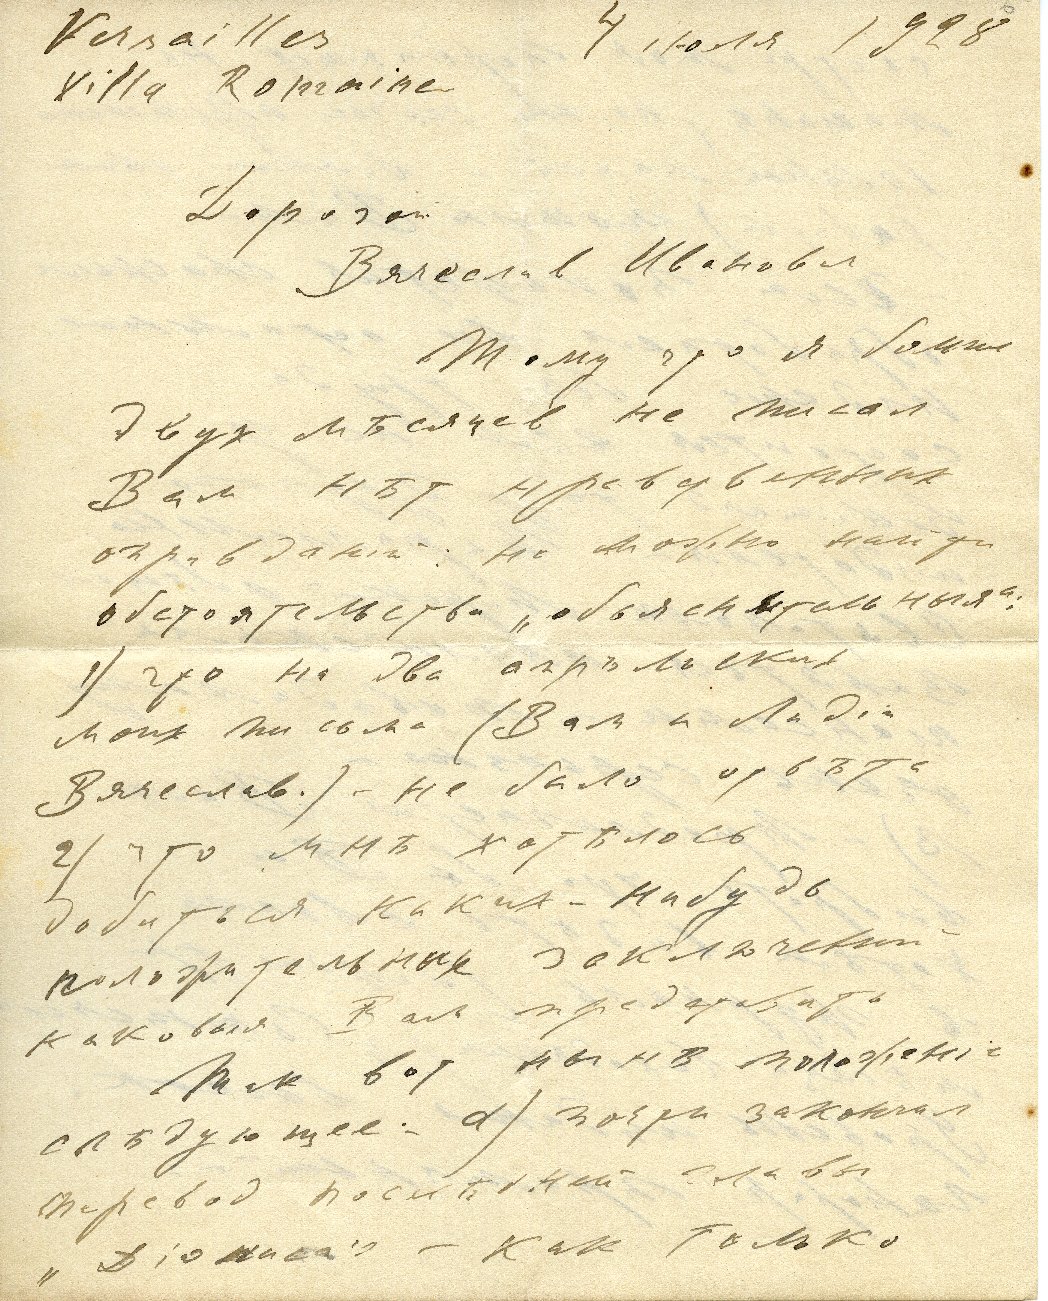 Versailles 4 июля 1928
Villa Romaine
Дорогой
Вячеслав Иванович
Тому что я больше
двух мѣсяцев не писал
Вам нѣт нравственных
оправданій: но можно найти
обстоятельства „объяснительныя“:
1) что на два апрѣльских
моих письма (Вам и Лидіи
Вячеслав.) – не было отвѣта
2) что мнѣ хотѣлось
добиться каких-нибудь
положительных заключений
каковыя Вам представить
Так вот нынѣ положеніе
слѣдующее. – α) почти закончил
перевод послѣдней главы
„Діониса“ – как только